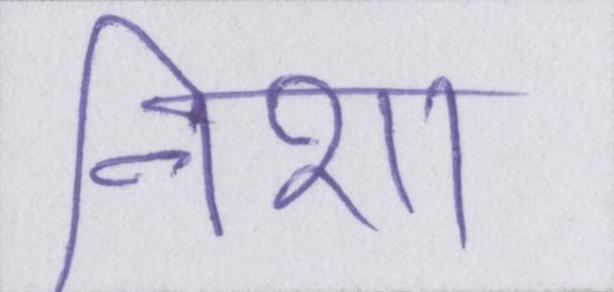 निशा